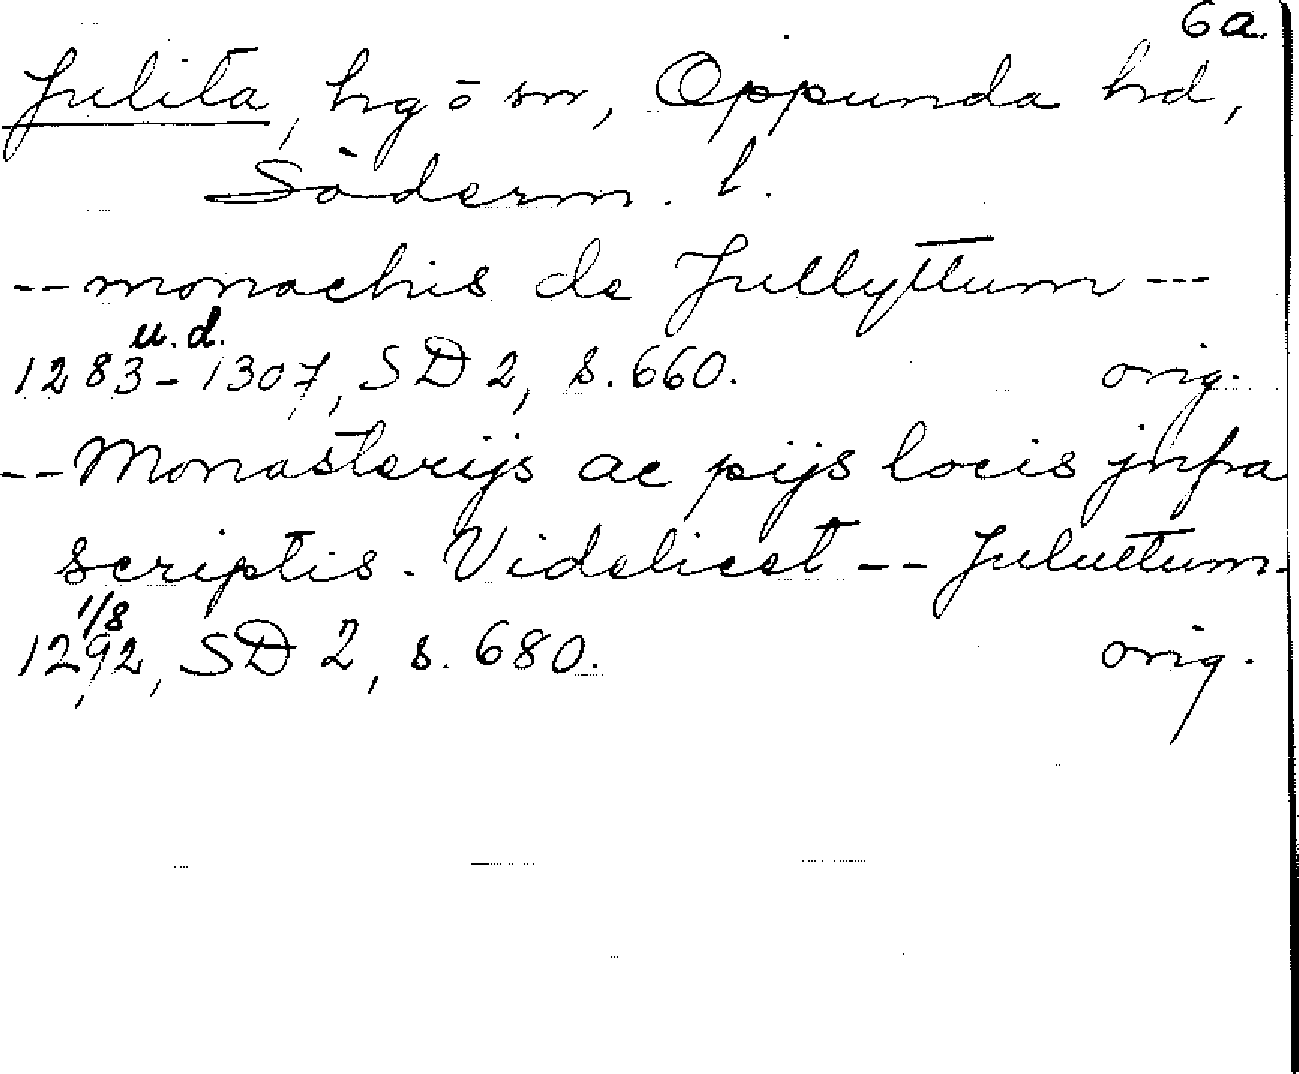 6a
Julita, hg o sn, Oppunda hd,
Söderm. l.
-- monachis de Jullyttum ---
u.d.
1283-1307, SD 2, s. 660. orig.
-- Monasterijs ac pijs locis jnfra
scriptis. Videlicet -- Juluttum.
1/8
1292, SD 2, s. 680. orig.